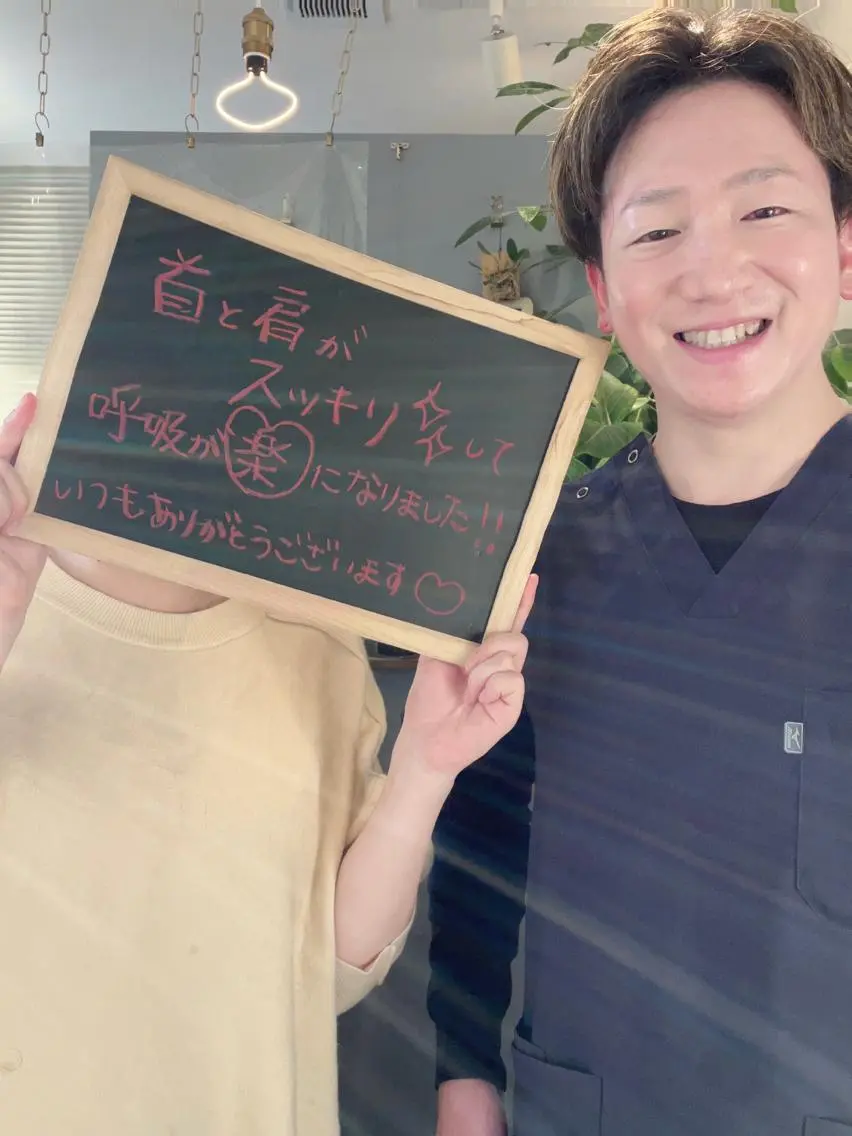 首と肩が
スッキリして
呼吸が楽になりました!!
いつもありがとうございます♡